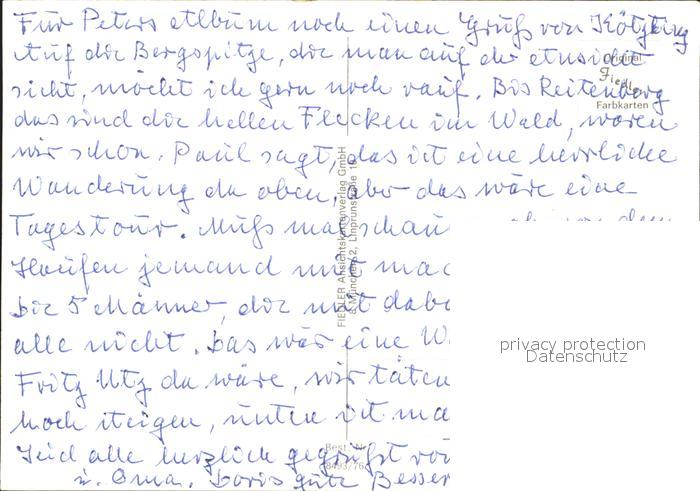 Für Peters Album noch einen Gruß von Kötzting
Auf die Bergspitze, die man auf der Ansicht
sieht, möcht ich gern noch rauf. Bis Reitenberg
das sind die hellen Flecken im Wald, waren
wir schon. Paul sagt, das ist eine herrliche
Wanderung da oben, aber das wäre eine
Tagestour. Muß mal schau
Haufen jemand mit mac
Die 5 Männer, die mit dabe
alle nicht. Das wär eine W
Fritz Utz da wäre, wir täten
hoch steigen, unten ist ma
Seid alle herzlich gegrüßt von
u. Oma. Doris gute Besser
Original
Fiedler
Farbkarten
FIEDLER Ansichtskartenverlag GmbH
8 München 2, Linprunstraße 16
Best. Nr.
8493/76
privacy protection
Datenschutz